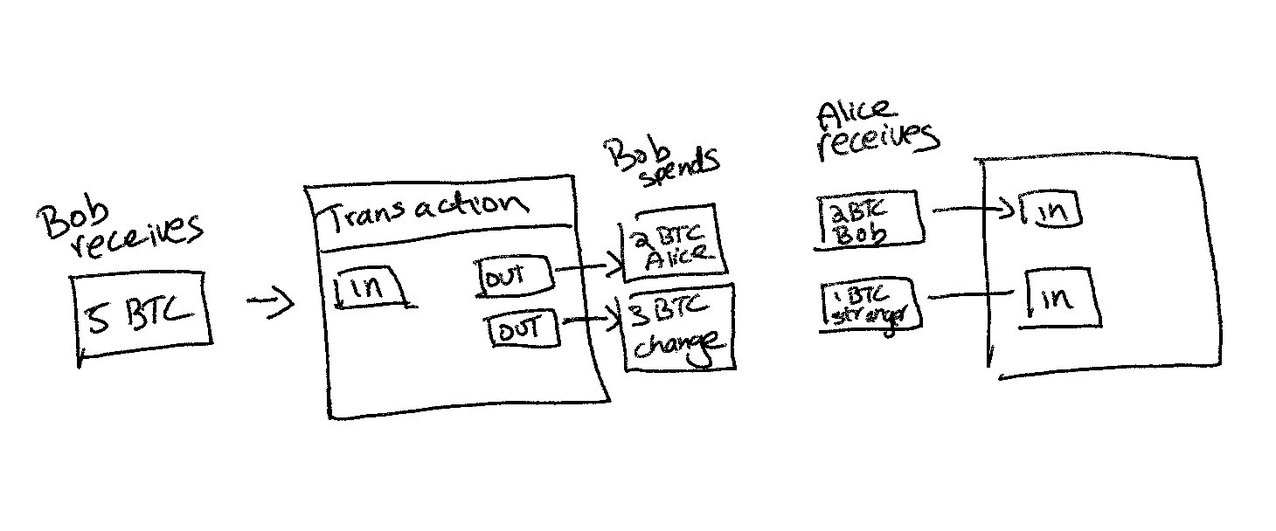 Bob
receives
5 BTC
Transaction
in
OUT
OUT
Bob
spends
2 BTC
Alice
3 BTC
change
Alice
receives
2 BTC
Bob
1 BTC
stranger
in
in